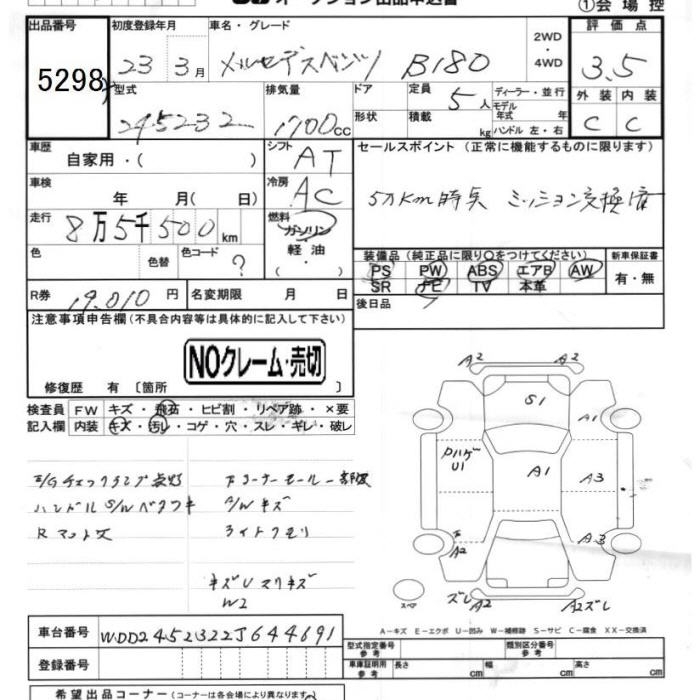 オークション出品申込書
①会場控
出品番号
5298
初度登録年月
23 3月
車名・グレード
メルセデスベンツ B180
2WD
・
4WD
評価点
3.5
型式
245232
排気量
1700cc
ドア
形状
定員
5人
積載
kg
ディーラー・並行
モデル
年式 年
ハンドル 左・右
外装 内装
C C
車歴
自家用・( )
シフト
AT
セールスポイント (正常に機能するものに限ります)
5万km時点 ミッション交換済
車検
年 月( 日)
冷房
AC
走行
8万5千500km
燃料
ガソリン
軽油
色
色替
色コード
?
装備品(純正品に限り○をつけてください)
新車保証書
PS PW ABS エアB AW
SR ナビ TV 本革
有・無
R券
19,010円
名変期限 月 日
後日品
注意事項申告欄(不具合内容等は具体的に記入して下さい)
NOクレーム・売切
修復歴 有 〔箇所 〕
検査員
記入欄
FW キズ・飛石・ヒビ割・リペア跡・×要
内装 キズ・汚し・コゲ・穴・スレ・ギレ・破レ
E/Gチェックランプ点灯
ハンドルS/Wベタツキ
A/Wキズ
ライトクモリ
キズU
W2
A2 A2
S1
A1
U1
A1
A3
A2
A3
スペア
ズレ A2
A2ズレ
A-キズ E-エクボ U-凹み W-補修跡 S-サビ C-腐食 XX-交換済
車台番号
WDD2452322J644691
登録番号
型式指定番号
参考
類別区分番号
参考
車庫証明用
参考
長さ cm
幅 cm
高さ cm
希望出品コーナー(コーナーは各会場により異なります)